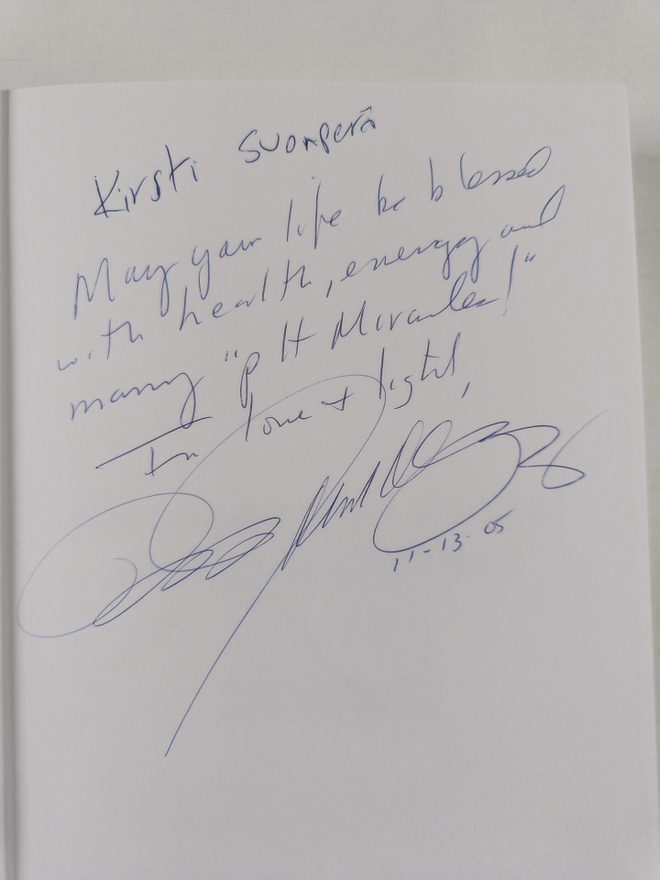 Kirsti Suonperä
May your life be blessed
with health, energy and
many "pH Miracles!"
In love & light,
11-13-05